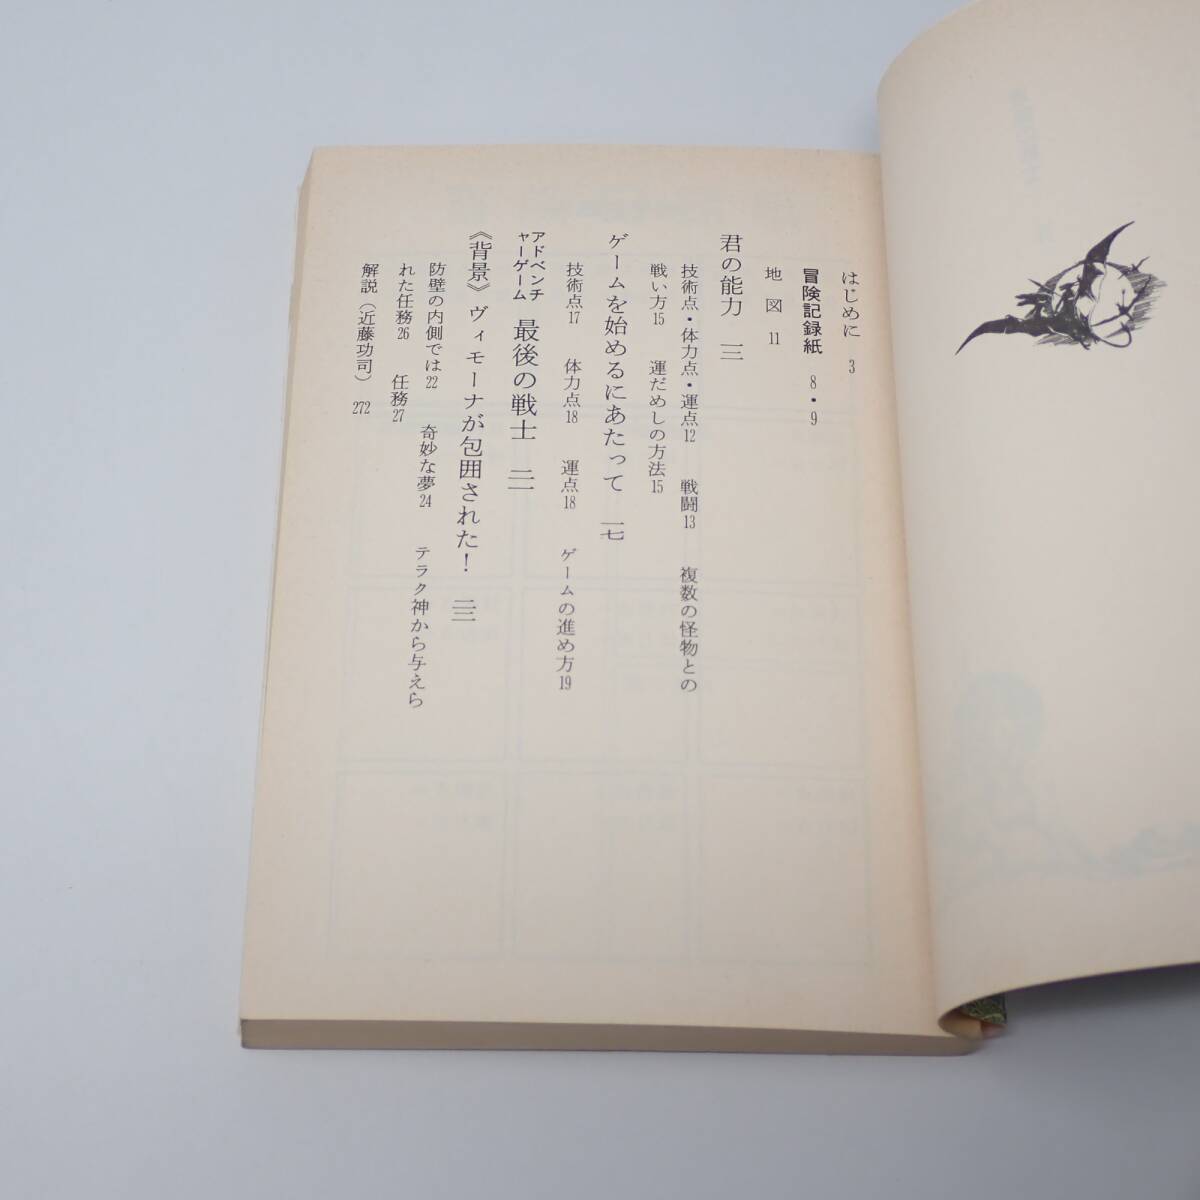 はじめに 3
冒険記録紙 8・9
地図 11
君の能力 一二
技術点・体力点・運点12 戦闘13 複数の怪物との
戦い方15 運だめしの方法15
ゲームを始めるにあたって 一七
技術点17 体力点18 運点18 ゲームの進め方19
アドベンチ
ャーゲーム 最後の戦士 二一
《背景》ヴィモーナが包囲された! 二二
防壁の内側では22 奇妙な夢24 テラク神から与えら
れた任務26 任務27
解説(近藤功司) 272